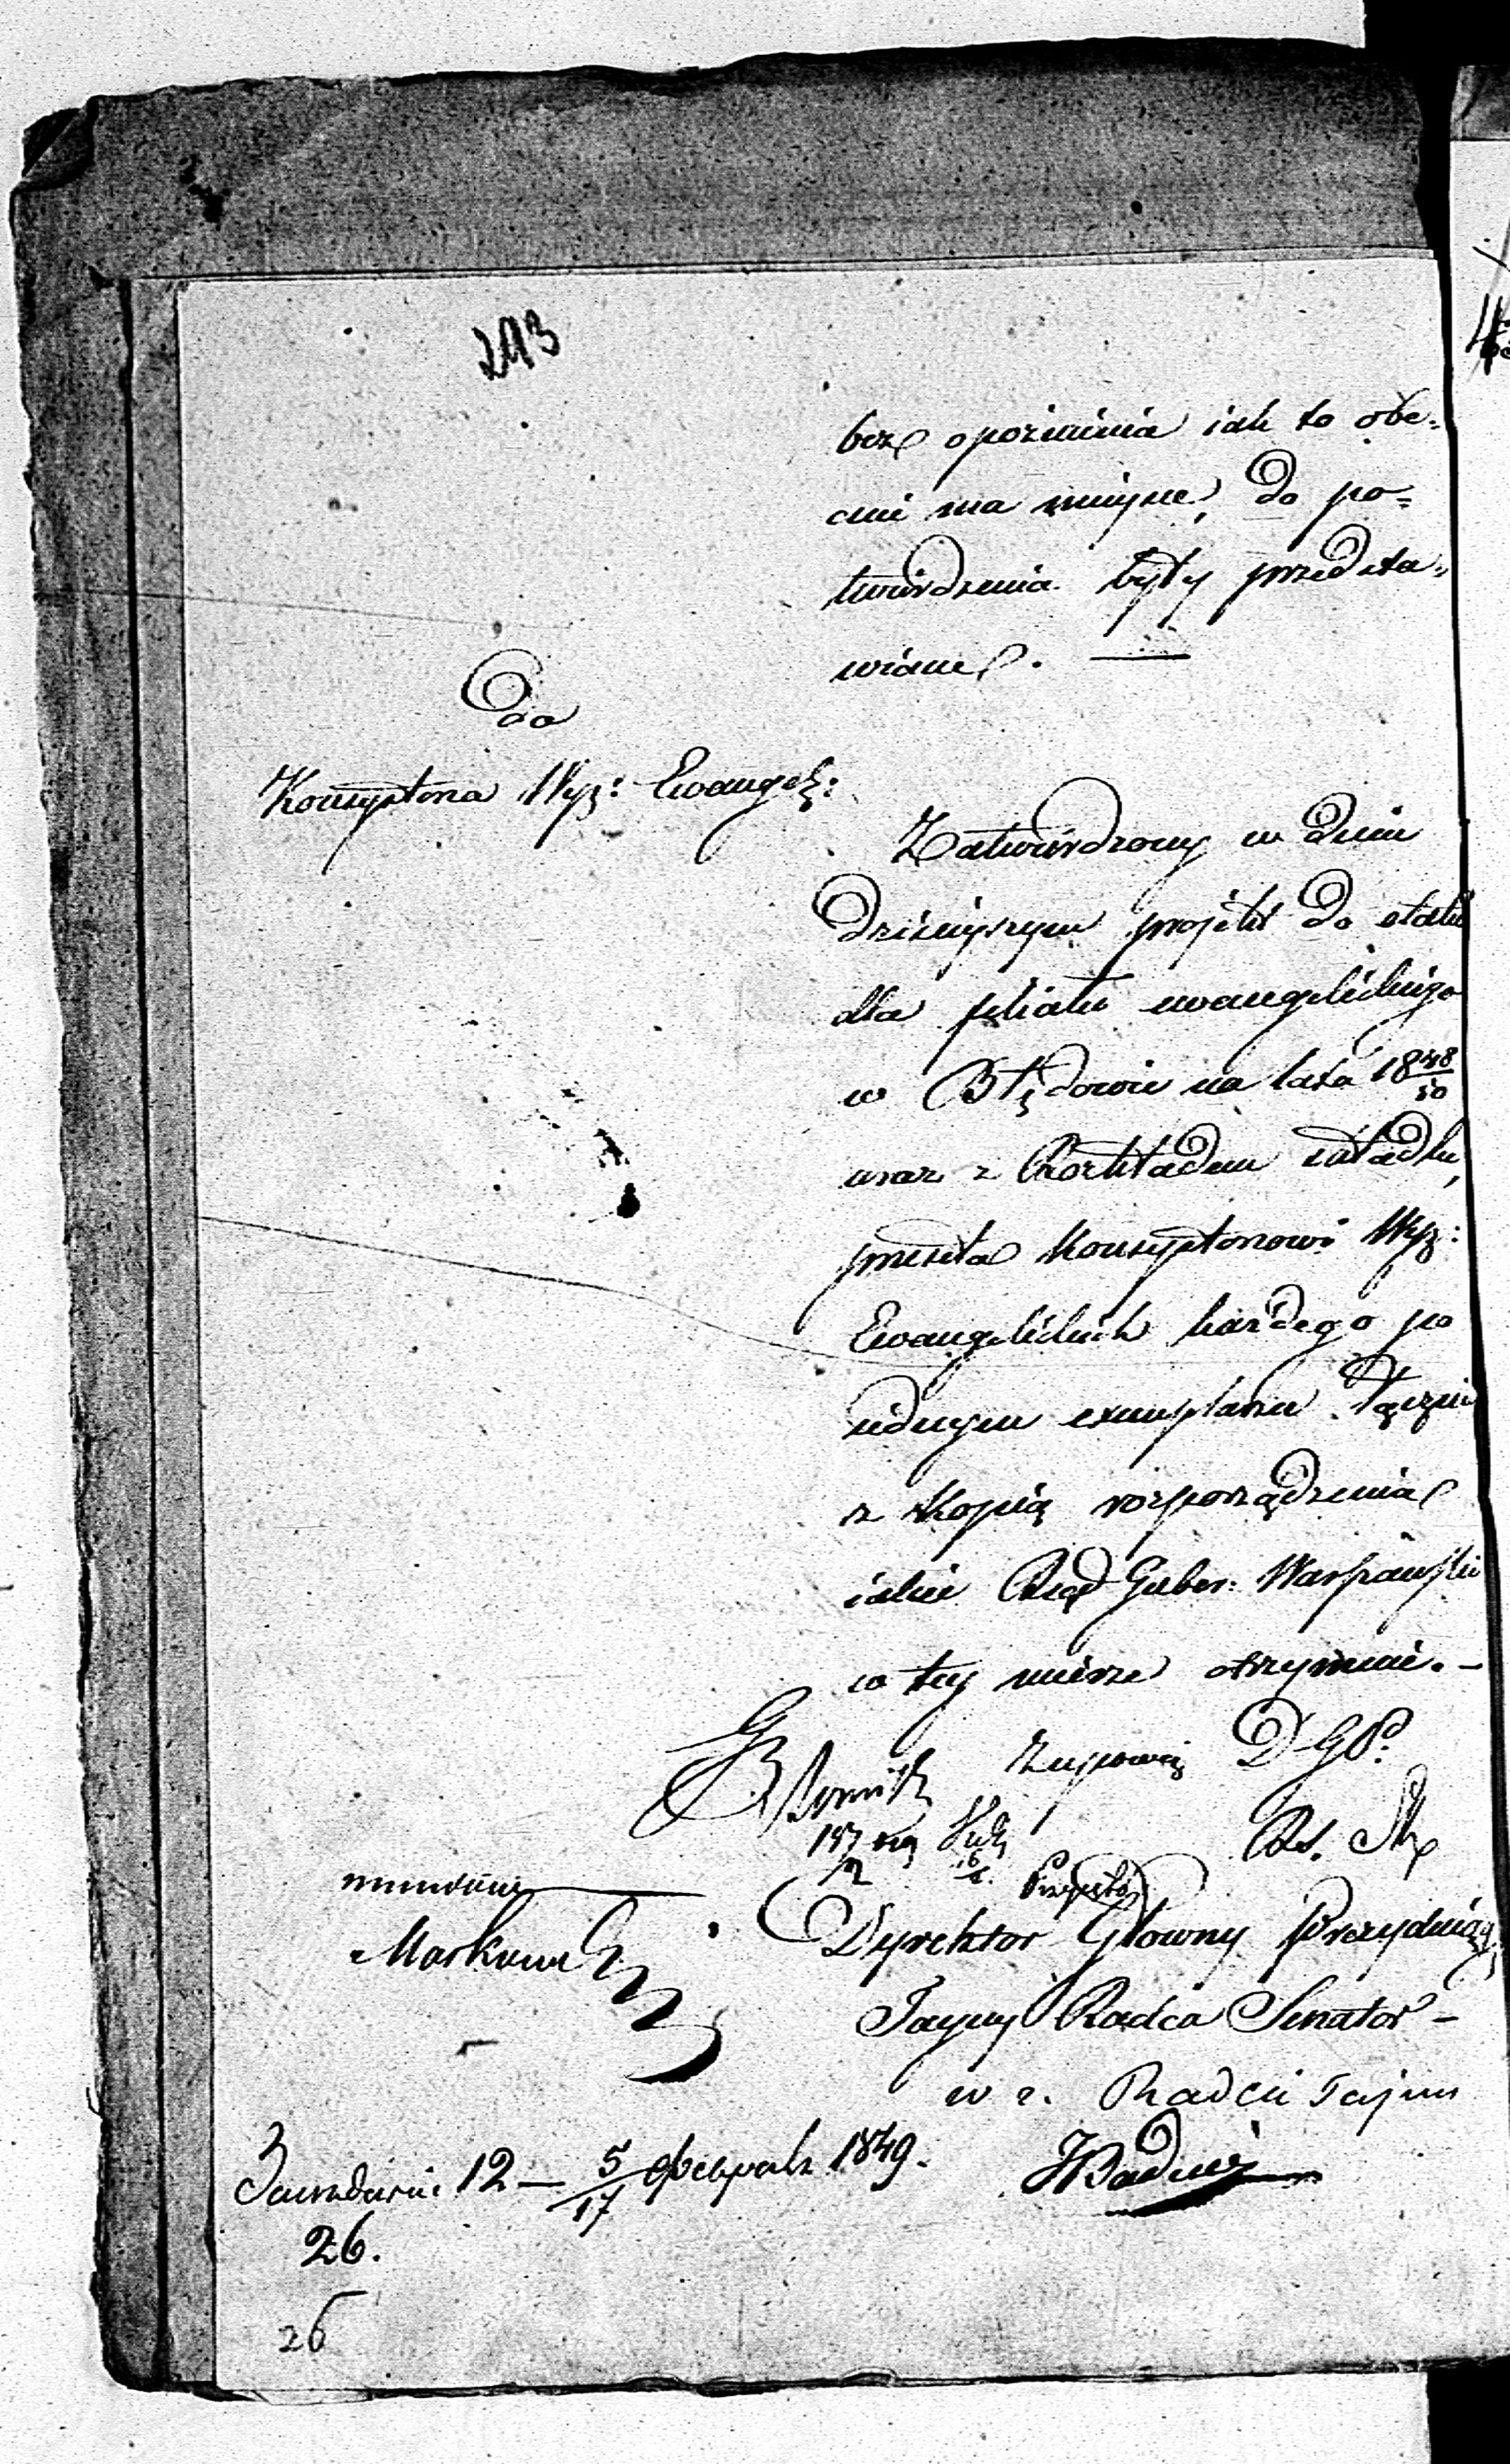 293
bez opoznienia iak to obe=
cnie ma mieysce, do po=
twierdzenia były przedsta=
wiane.
Do
Konsystorza Wyz: Ewangel:
Zatwierdzony w dniu
dzisieyszym projekt do etatu
dla filiału ewangelickiego
w Błędowie na lata 1848/50
wraz z Rozkładem składki,
przesyła Konsystorzowi Wyz:
Ewangelickich każdego po
iednym exemplarzu łącznie
z kopią rozporządzenia
iakie Rząd Guber: Warszawski
w tey mierze otrzymuie. –
z upoważ D. G. P.
Rz. St.
Dyrektor Głowny Prezyduiący
Tayny Radca Senator –
w z. Radca Tajny
12 — 5/17 февраля 1849.
26.
26